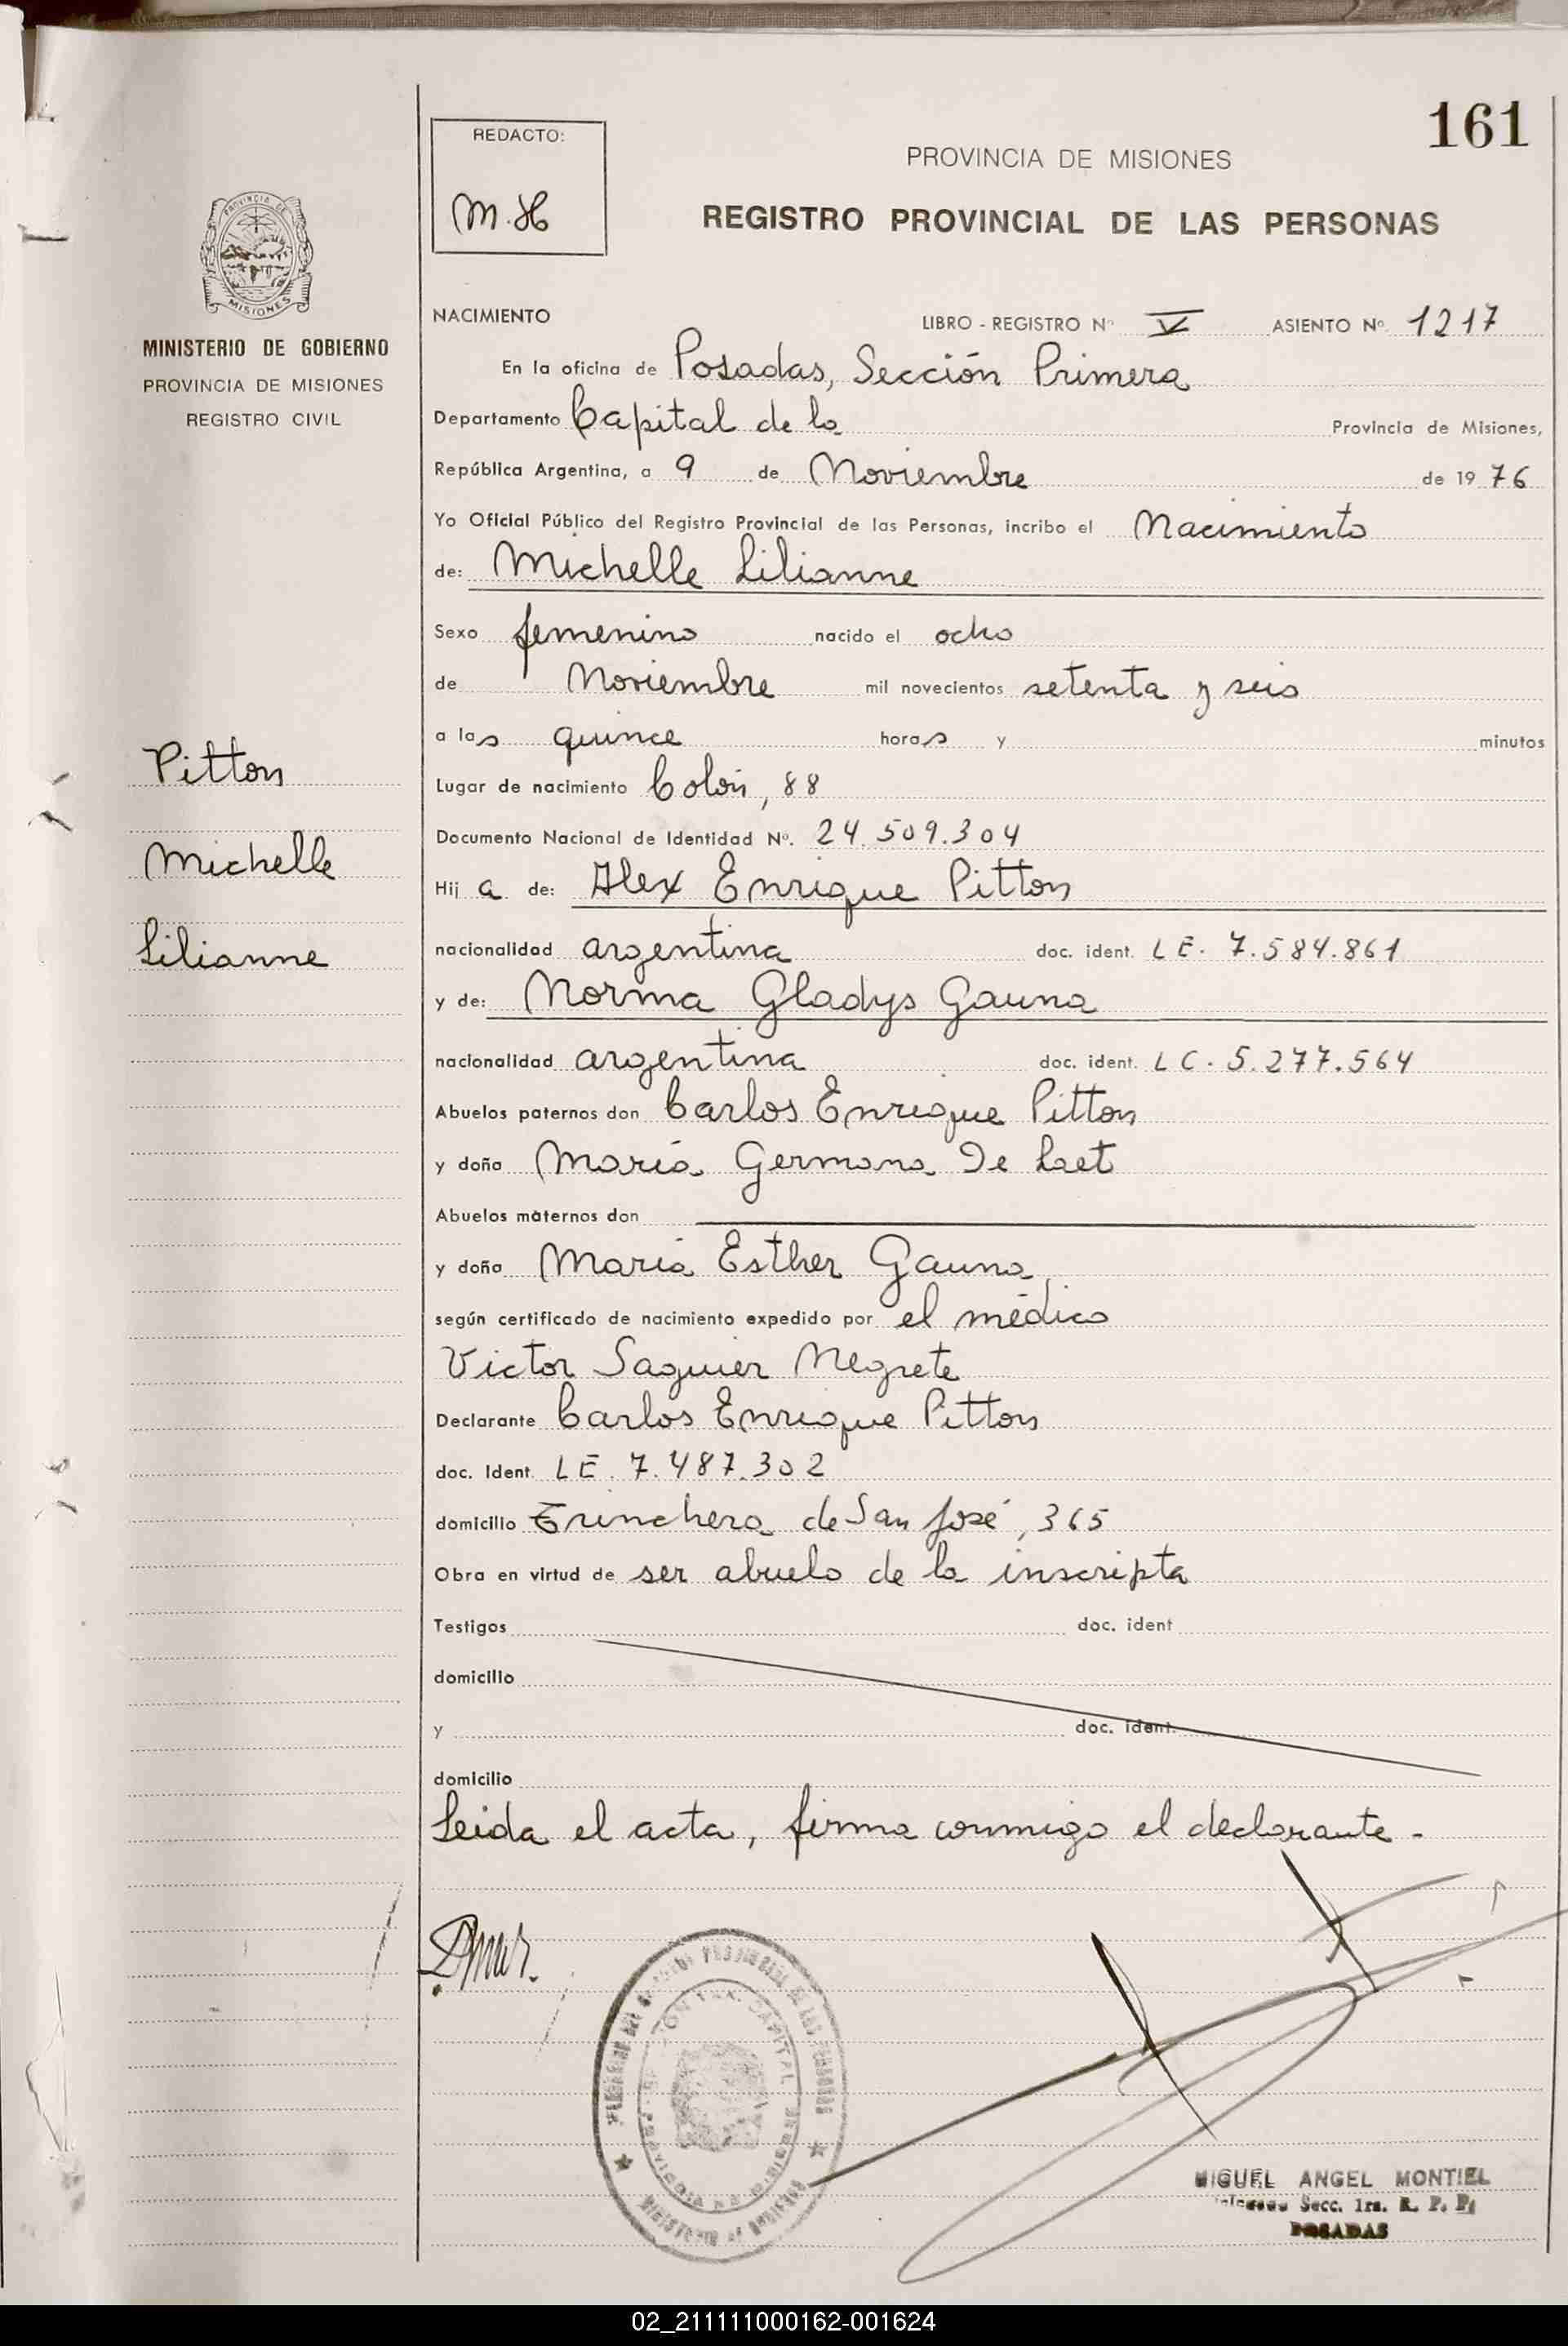 161
REDACTO:
M.H
PROVINCIA DE MISIONES
REGISTRO PROVINCIAL DE LAS PERSONAS
PROVINCIA DE
MISIONES
MINISTERIO DE GOBIERNO
PROVINCIA DE MISIONES
REGISTRO CIVIL
NACIMIENTO LIBRO - REGISTRO Nº V ASIENTO Nº 1217
En la oficina de Posadas, Sección Primera
Departamento Capital de la Provincia de Misiones,
República Argentina, a 9 de Noviembre de 1976
Yo Oficial Público del Registro Provincial de las Personas, incribo el Nacimiento
de: Michelle Lilianne
Sexo femenino nacido el ocho
de Noviembre mil novecientos setenta y seis
a las quince horas y minutos
Pitton
Lugar de nacimiento Colón, 88
Documento Nacional de Identidad Nº. 24.509.304
Michelle
Hija de: Alex Enrique Pitton
Lilianne
nacionalidad argentina doc. ident. LE. 7.584.861
y de: Norma Gladys Gauna
nacionalidad argentina doc. ident. LC. 5.277.564
Abuelos paternos don Carlos Enrique Pitton
y doña María Germana De Laet
Abuelos maternos don
y doña María Esther Gauna,
según certificado de nacimiento expedido por el médico
Victor Saguier Negrete
Declarante Carlos Enrique Pitton
doc. Ident. LE. 7.487.302
domicilio Trinchera de San José, 365
Obra en virtud de ser abuelo de la inscripta
Testigos doc. ident
domicilio
y doc. ident.
domicilio
Leida el acta, firma conmigo el declarante.
MIGUEL ANGEL MONTIEL
Secc. 1ra. R. P. P.
POSADAS
02_211111000162-001624